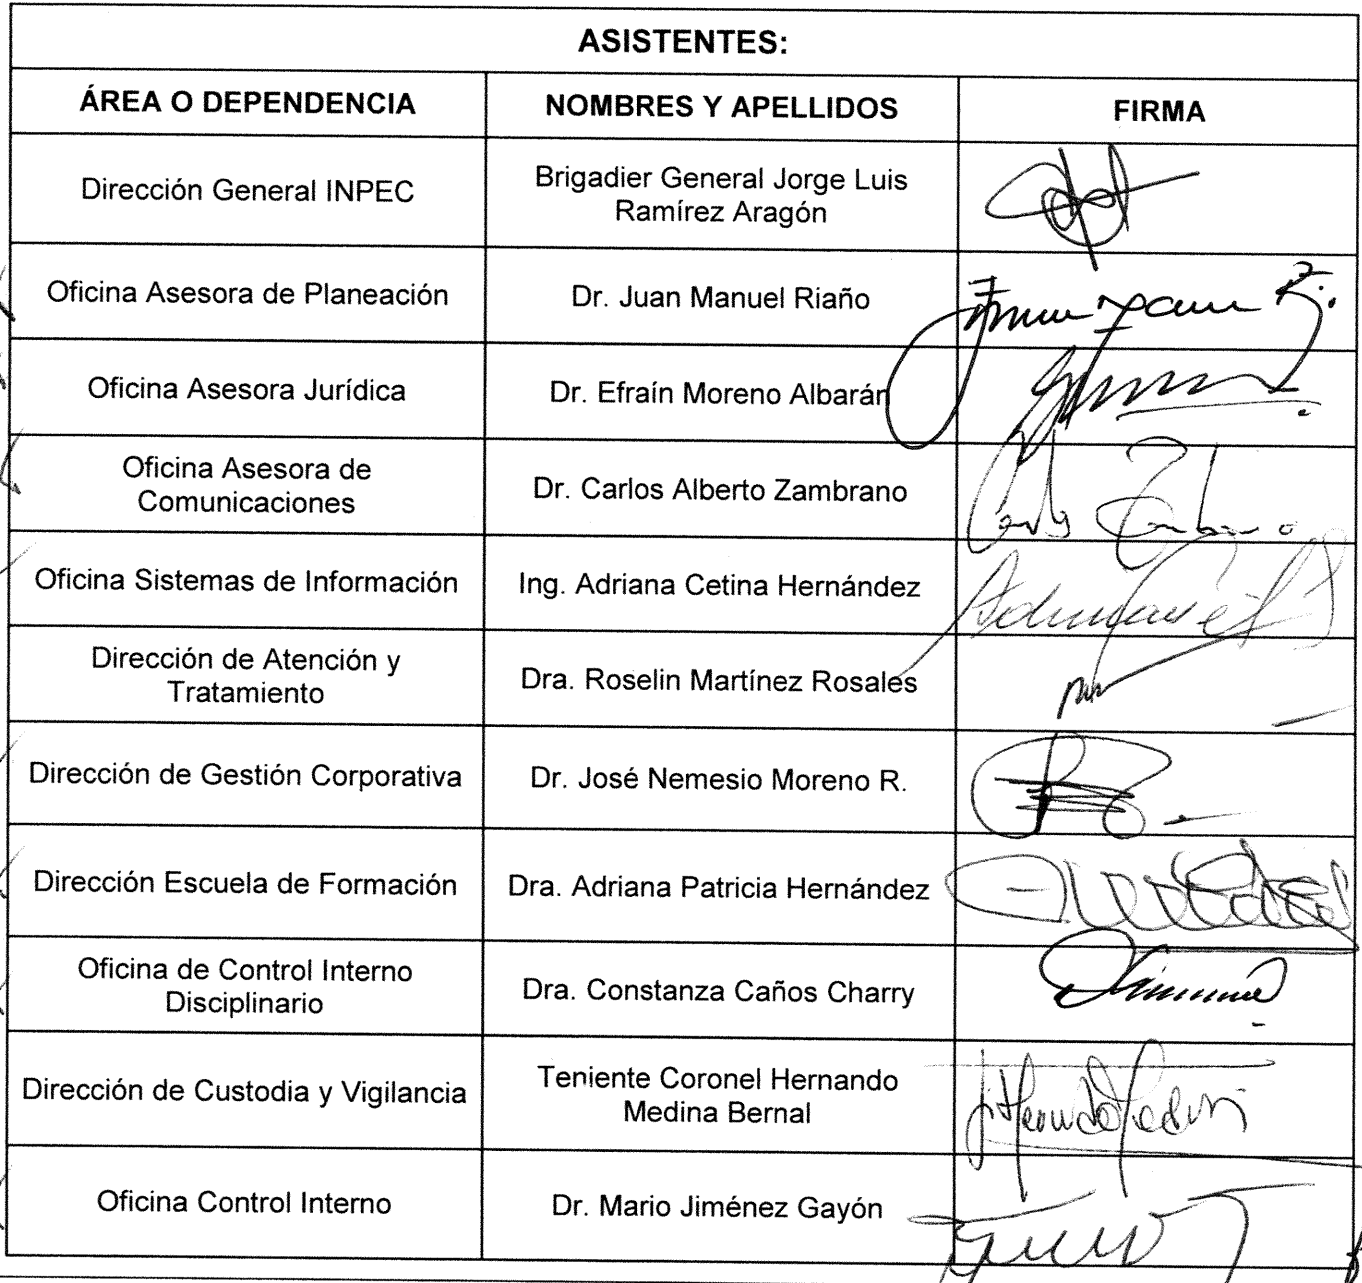 ASISTENTES:
ÁREA O DEPENDENCIA NOMBRES Y APELLIDOS FIRMA
Dirección General INPEC
Brigadier General Jorge Luis
Ramírez Aragón
Oficina Asesora de Planeación Dr. Juan Manuel Riaño
Oficina Asesora Jurídica Dr. Efraín Moreno Albarán
Oficina Asesora de
Comunicaciones
Dr. Carlos Alberto Zambrano
Oficina Sistemas de Información Ing. Adriana Cetina Hernández
Dirección de Atención y
Tratamiento
Dra. Roselin Martínez Rosales
Dirección de Gestión Corporativa Dr. José Nemesio Moreno R.
Dirección Escuela de Formación Dra. Adriana Patricia Hernández
Oficina de Control Interno
Disciplinario
Dra. Constanza Caños Charry
Dirección de Custodia y Vigilancia
Teniente Coronel Hernando
Medina Bernal
Oficina Control Interno Dr. Mario Jiménez Gayón